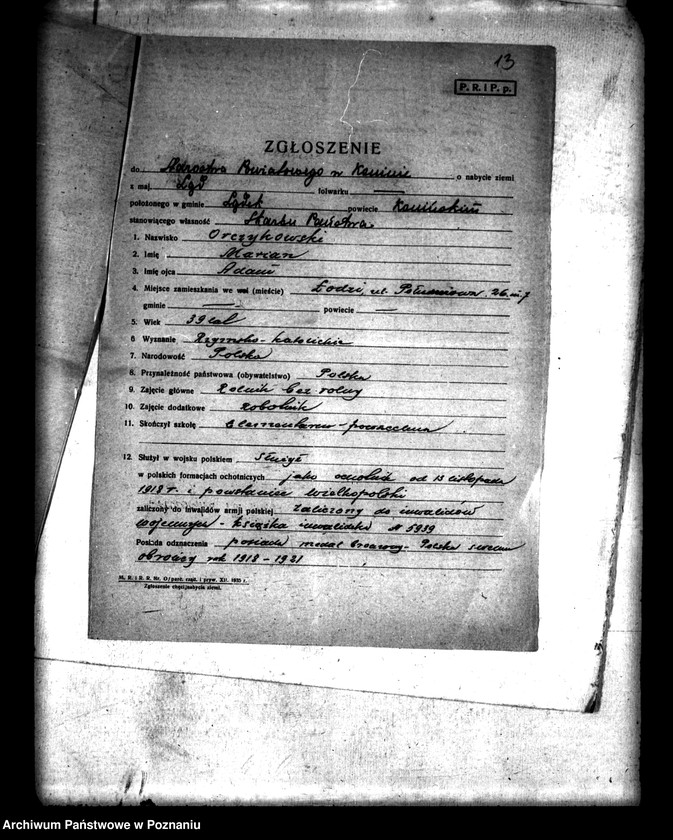 13
P. R. i P. p.
ZGŁOSZENIE
do Starostwa Powiatowego w Koninie o nabycie ziemi
z maj. Ląd folwarku —
położonego w gminie Lądek powiecie Konińskim
stanowiącego własność Skarbu Państwa
1. Nazwisko Orczykowski
2. Imię Marian
3. Imię ojca Adam
4. Miejsce zamieszkania we wsi (mieście) Łodzi, ul. Południowa 26 m. 7
gminie — powiecie —
5. Wiek 39 lat
6 Wyznanie Rzymsko-katolickie
7. Narodowość Polska
8. Przynależność państwowa (obywatelstwo) Polska
9. Zajęcie główne Rolnik bez rolny
10. Zajęcie dodatkowe robotnik
11. Skończył szkołę Elementarno-powszechna
12. Służył w wojsku polskiem służył
w polskich formacjach ochotniczych jako ochotnik od 13 listopada
1918 r. i powstaniec wielkopolski
zaliczony do inwalidów armji polskiej zaliczony do inwalidów
wojennych - książka inwalidzka № 5939
Posiada odznaczenia posiada medal bronzowy - Polska swemu
obrońcy rok 1918 - 1921
M. R. i R. R. Nr. O/parc. rząd. i pryw. XII. 1935 r.
Zgłoszenie chęci nabycia ziemi.
Archiwum Państwowe w Poznaniu